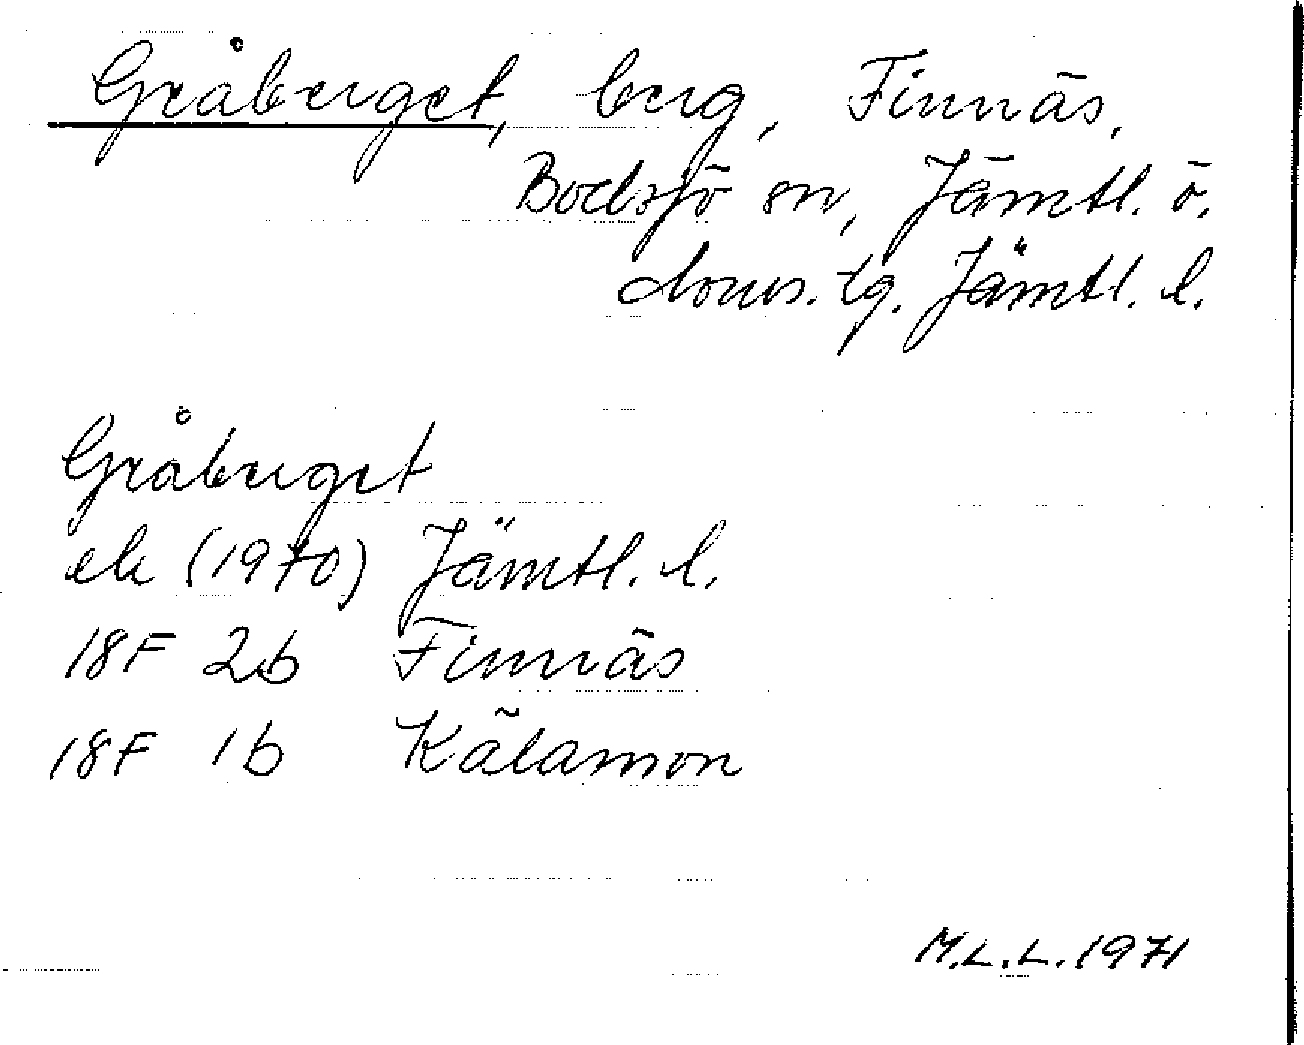 Gråberget, berg, Finnäs,
Bodsjö sn, Jämtl. ö.
doms. tg. Jämtl. l.
Gråberget
ek (1970) Jämtl. l.
18F 2b Finnäs
18F 1b Kälamon
M.L.L. 1971